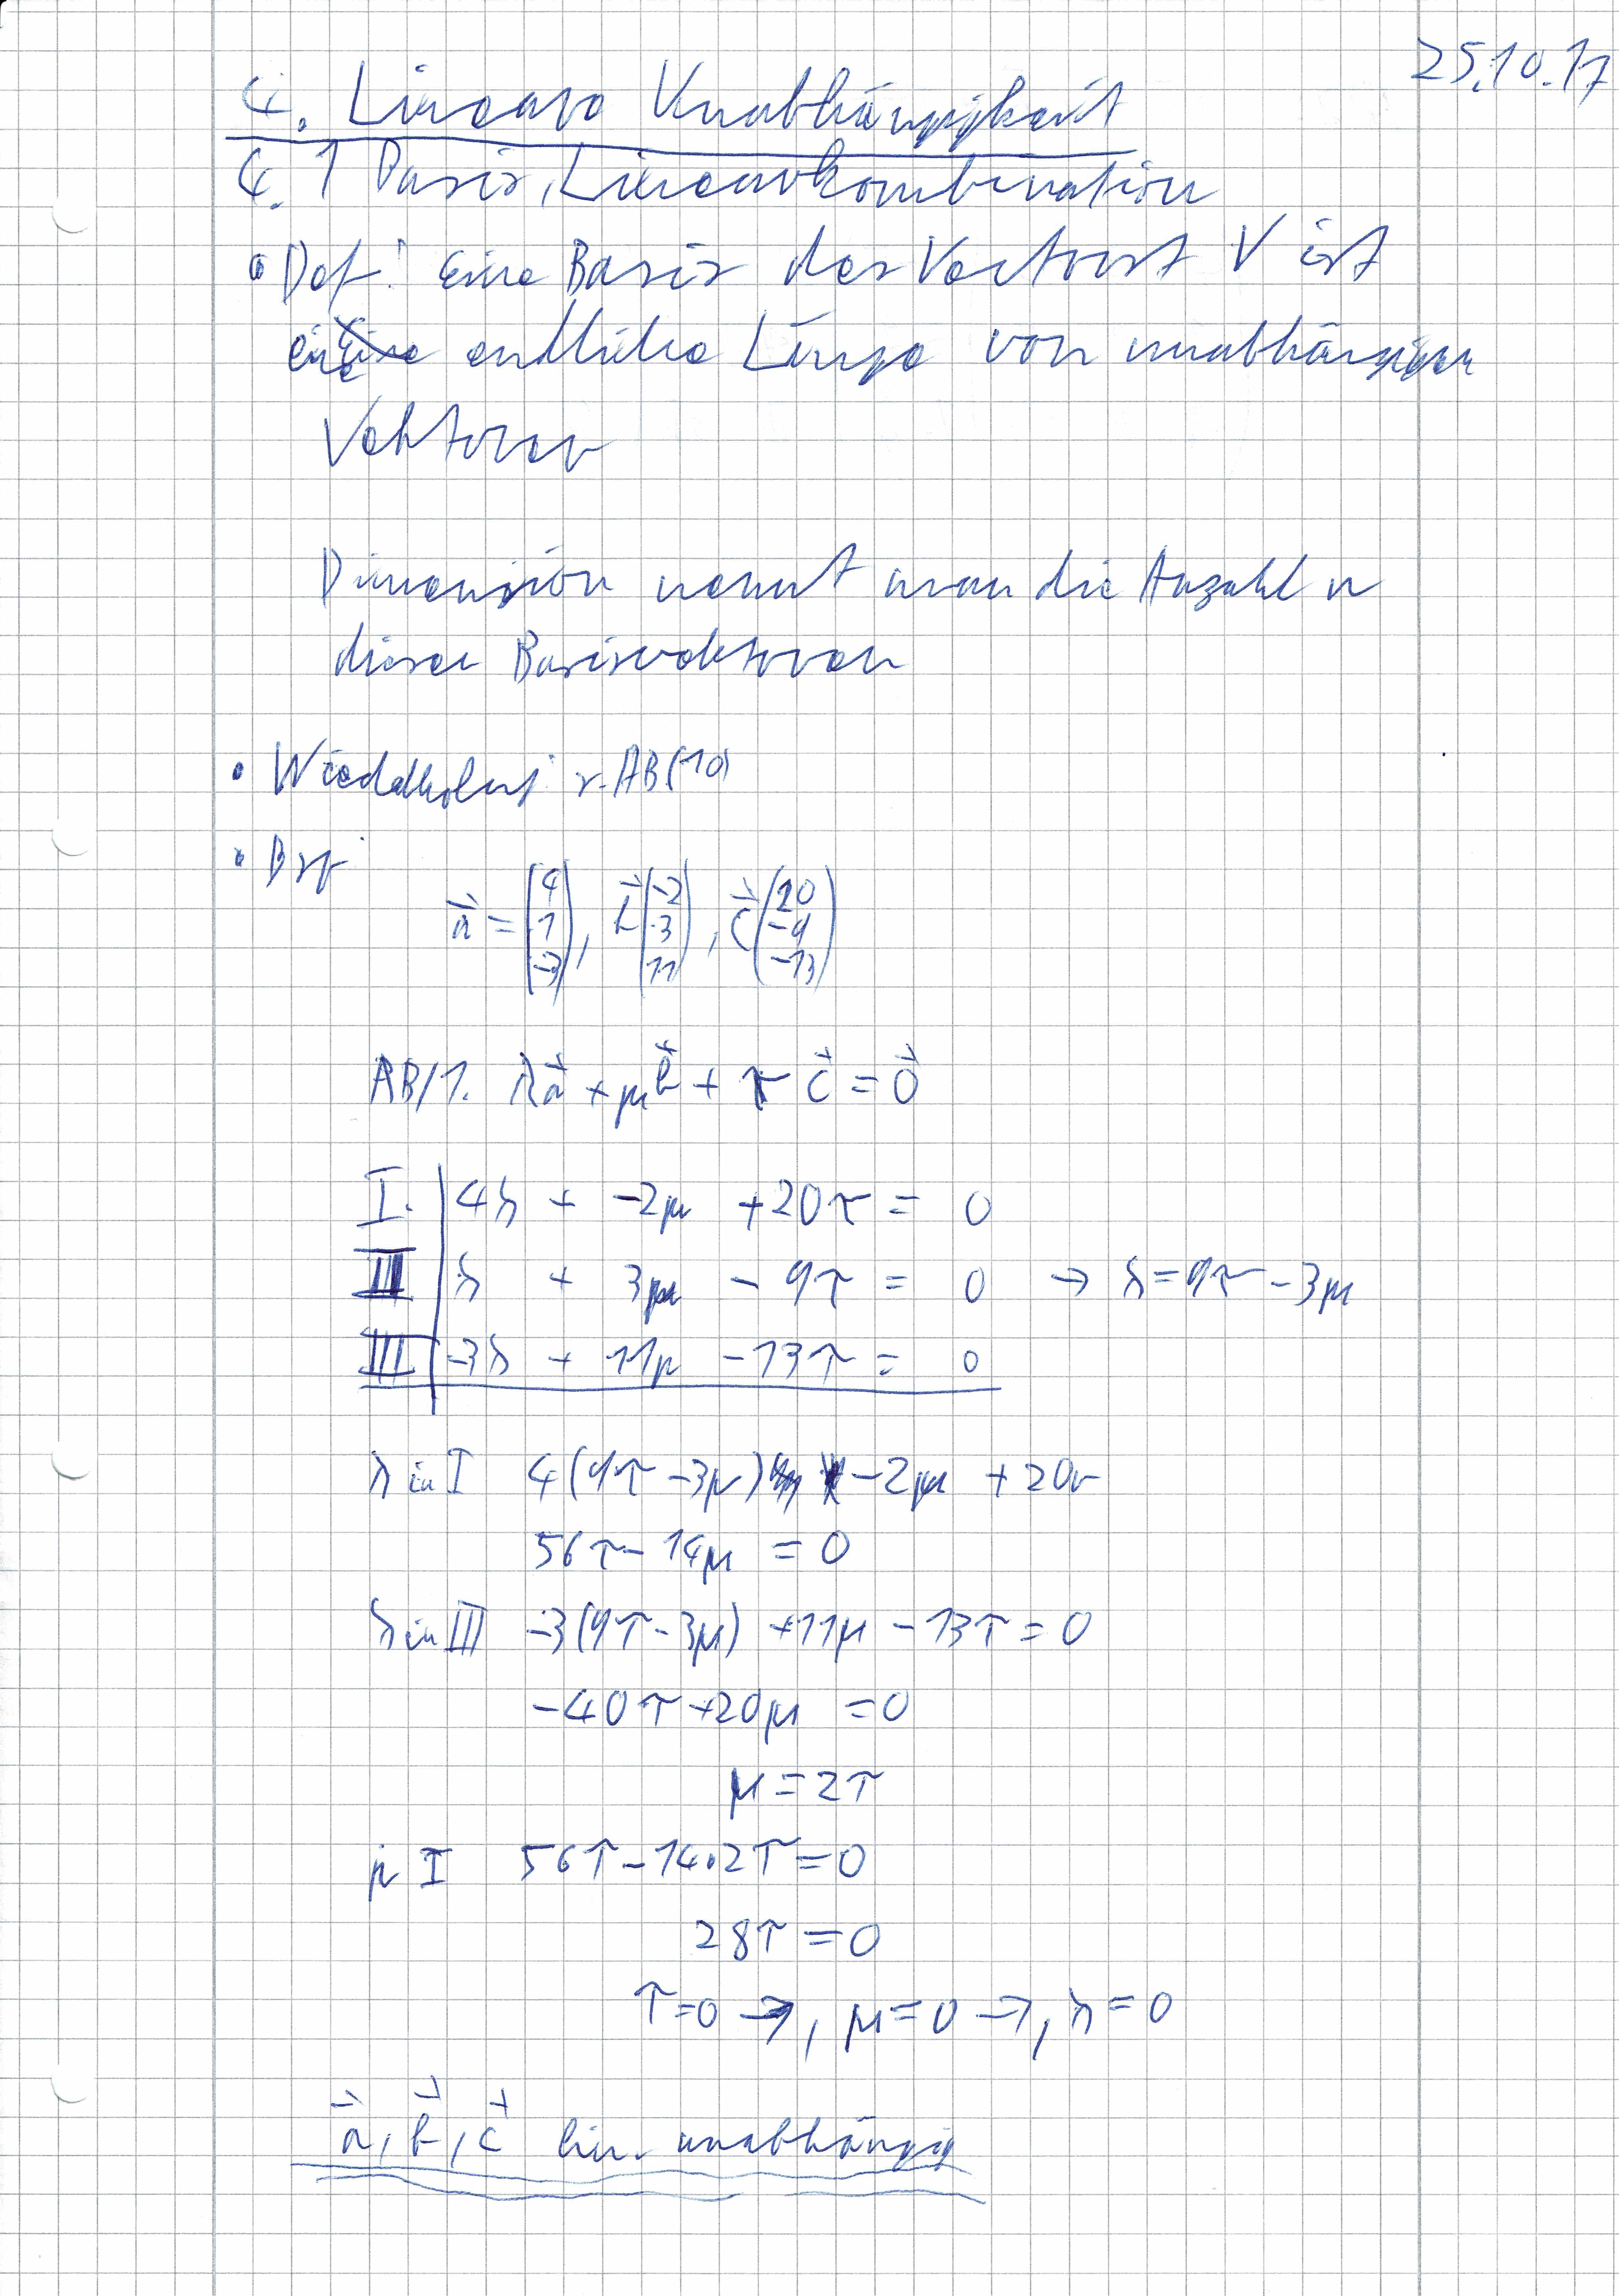 25.10.17
4. Lineare Unabhängigkeit
4.1 Basis, Linearkombination
• Def: Eine Basis des Vectorst V ist
eine endliche Länge von unabhängigen
Vektoren
Dimension nennt man die Anzahl n
dieser Basisvektoren
• AB(10)
• Bsp:
a⃗ = (4 1 -3), b⃗ (-2 3 11), c⃗ (20 -9 -13)
AB/1. λa⃗ + μb⃗ + τc⃗ = 0⃗
I. | 4λ + -2μ +20τ = 0
II | λ + 3μ - 9τ = 0 → λ = 9τ - 3μ
III | -3λ + 11μ - 13τ = 0
λ in I 4(9τ - 3μ) - 2μ + 20τ
56τ - 14μ = 0
λ in III -3(9τ - 3μ) + 11μ - 13τ = 0
-40τ + 20μ = 0
μ = 2τ
μ I 56τ - 14·2τ = 0
28τ = 0
τ = 0 →, μ = 0 →, λ = 0
a⃗, b⃗, c⃗ lin. unabhängig